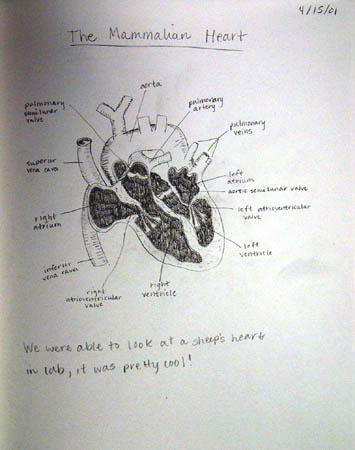 4/15/01
The Mammalian Heart
aorta
pulmonary
semilunar
valve
pulmonary
artery
pulmonary
veins
superior
vena cava
left
atrium
aortic semilunar valve
right
atrium
left atrioventricular
valve
left
ventricle
inferior
vena cava
right
atrioventricular
valve
right
ventricle
We were able to look at a sheep's heart
in lab, it was pretty cool!